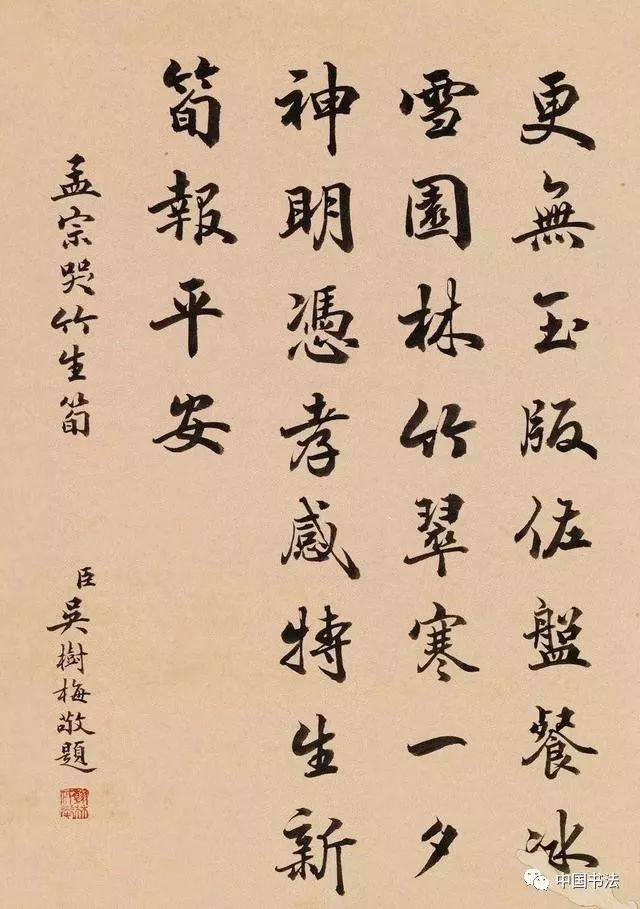 更無玉版佐盤餐冰
雪園林竹翠寒一夕
神明憑孝感特生新
筍報平安
孟宗哭竹生筍
臣吳樹梅敬題
中国书法